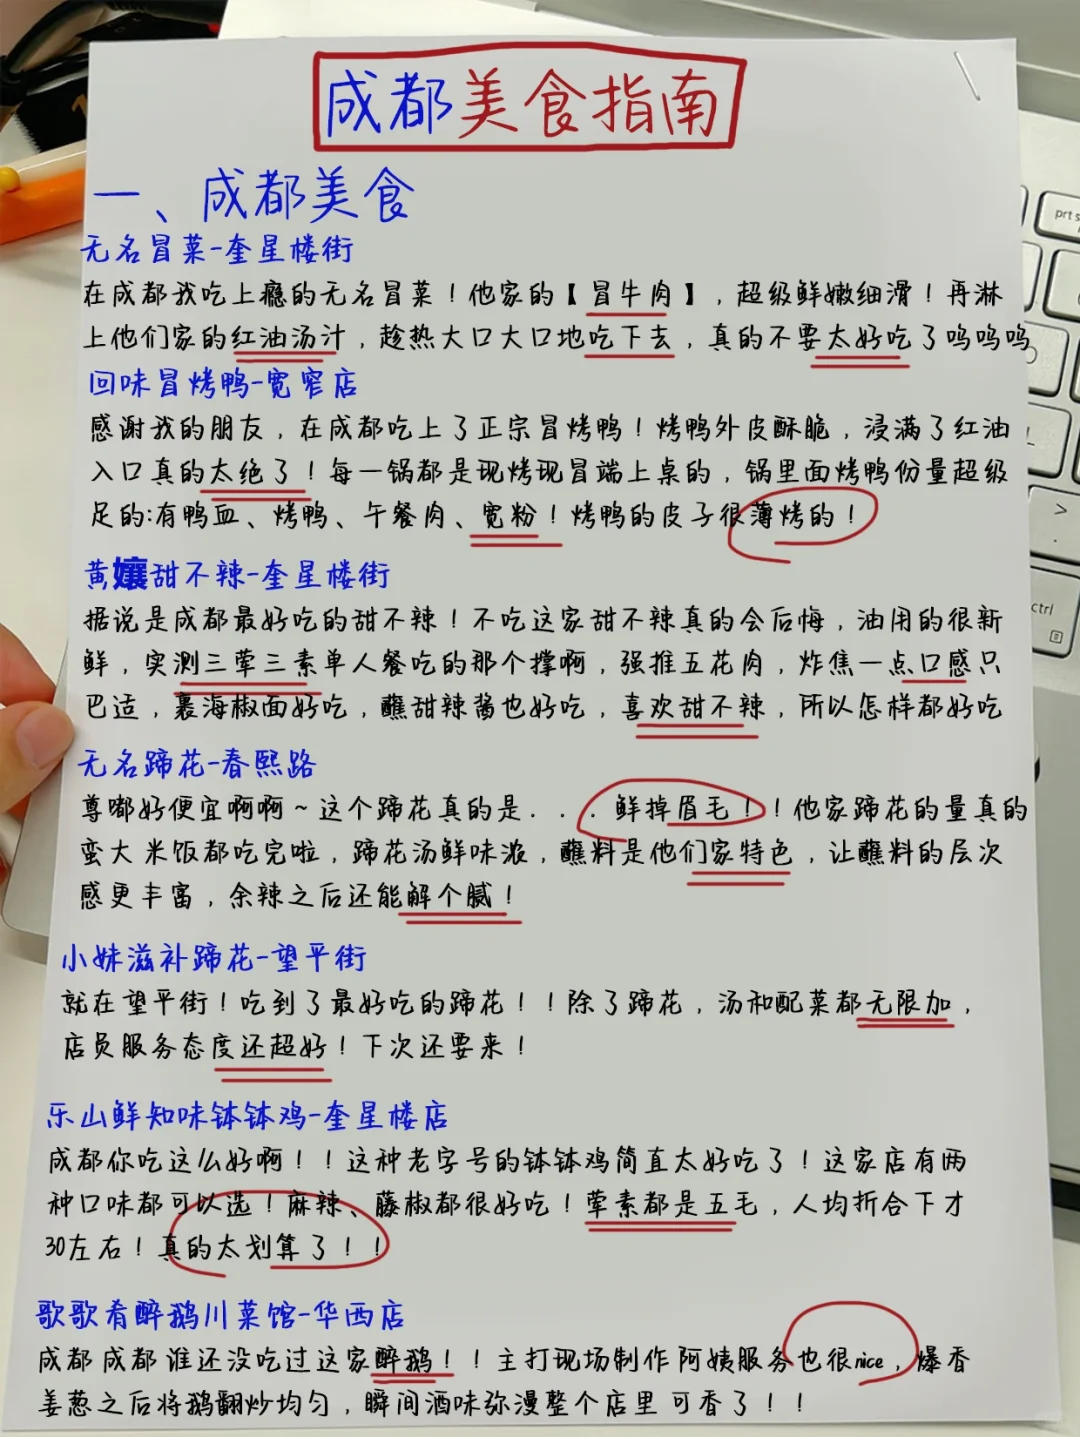 成都美食指南
一、成都美食
无名冒菜-奎星楼街
在成都我吃上瘾的无名冒菜！他家的【冒牛肉】，超级鲜嫩细滑！再淋
上他们家的红油汤汁，趁热大口大口地吃下去，真的不要太好吃了呜呜呜
回味冒烤鸭-宽窄店
感谢我的朋友，在成都吃上了正宗冒烤鸭！烤鸭外皮酥脆，浸满了红油
入口真的太绝了！每一锅都是现烤现冒端上桌的，锅里面烤鸭份量超级
足的:有鸭血、烤鸭、午餐肉、宽粉！烤鸭的皮子很薄烤的！
黄孃甜不辣-奎星楼街
据说是成都最好吃的甜不辣！不吃这家甜不辣真的会后悔，油用的很新
鲜，实测三荤三素单人餐吃的那个撑啊，强推五花肉，炸焦一点口感只
巴适，裹海椒面好吃，蘸甜辣酱也好吃，喜欢甜不辣，所以怎样都好吃
无名蹄花-春熙路
尊嘟好便宜啊啊～这个蹄花真的是...鲜掉眉毛！！他家蹄花的量真的
蛮大 米饭都吃完啦，蹄花汤鲜味浓，蘸料是他们家特色，让蘸料的层次
感更丰富，余辣之后还能解个腻！
小妹滋补蹄花-望平街
就在望平街！吃到了最好吃的蹄花！！除了蹄花，汤和配菜都无限加，
店员服务态度还超好！下次还要来！
乐山鲜知味钵钵鸡-奎星楼店
成都你吃这么好啊！！这种老字号的钵钵鸡简直太好吃了！这家店有两
种口味都可以选！麻辣、藤椒都很好吃！荤素都是五毛，人均折合下才
30左右！真的太划算了！！
歌歌肴醉鹅川菜馆-华西店
成都成都谁还没吃过这家醉鹅！！主打现场制作阿姨服务也很nice，爆香
姜葱之后将鹅翻炒均匀，瞬间酒味弥漫整个店里可香了！！
prt s
ctrl